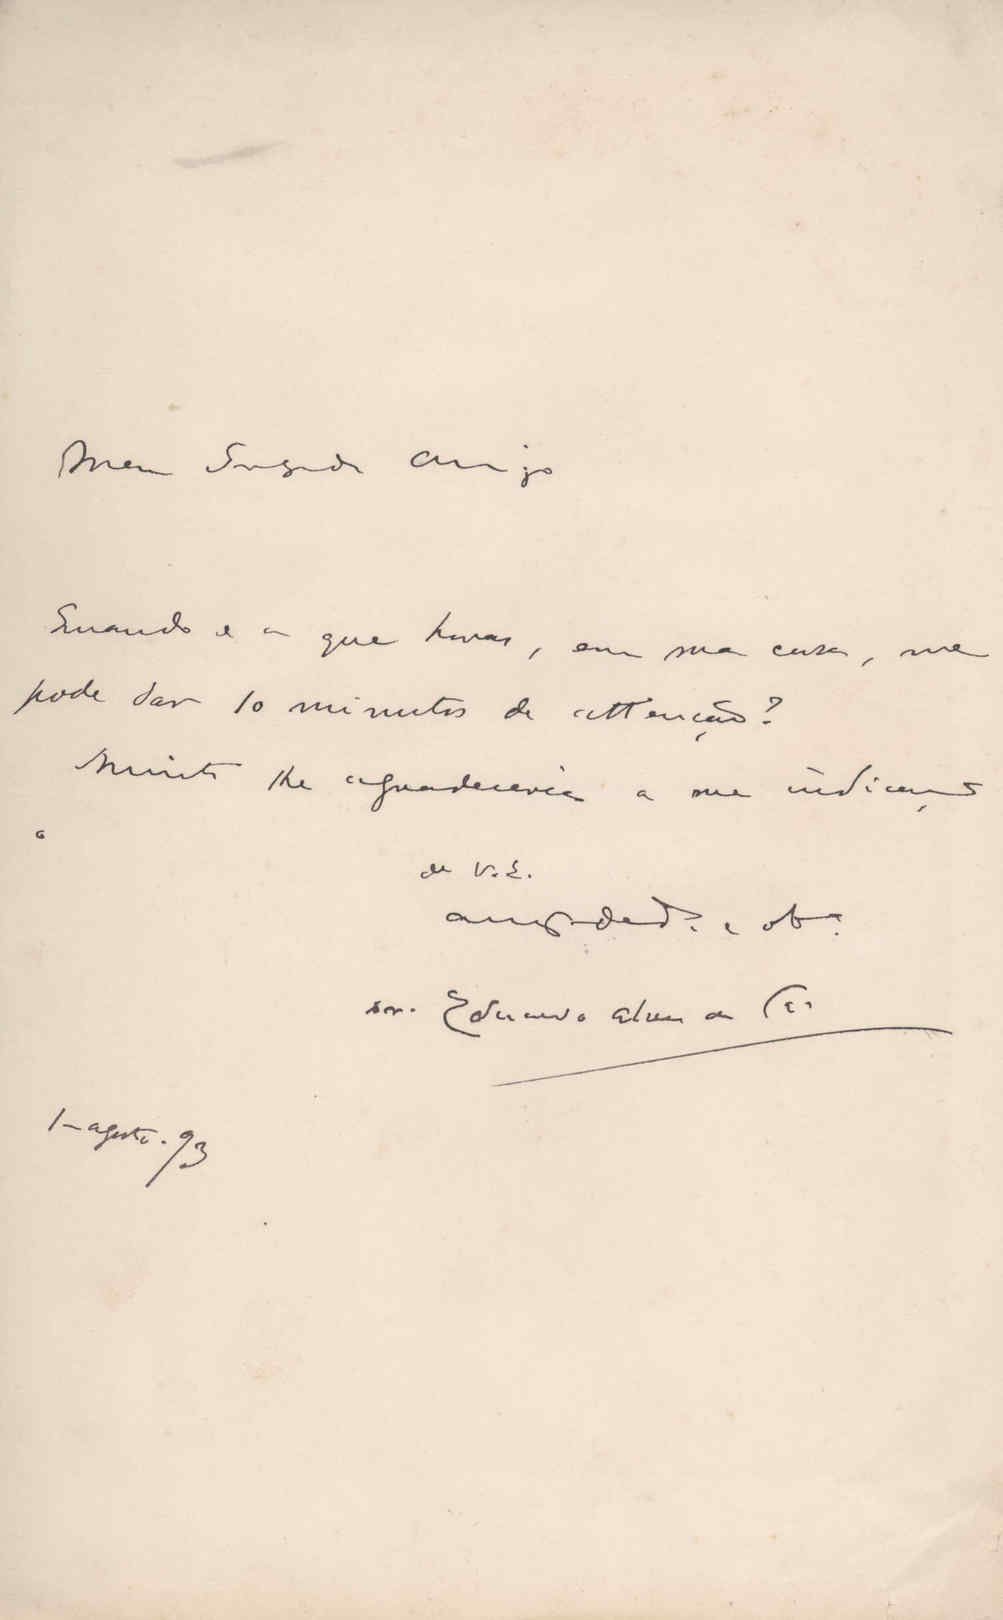 Meu Amigo
Quando e a que horas, em sua casa, me
pode dar 10 minutos de attenção?
Muito lhe agradeceria a me indicação
de V. E.
amº dedº e obº
Eduardo Alves de Sá
1-agosto. 93